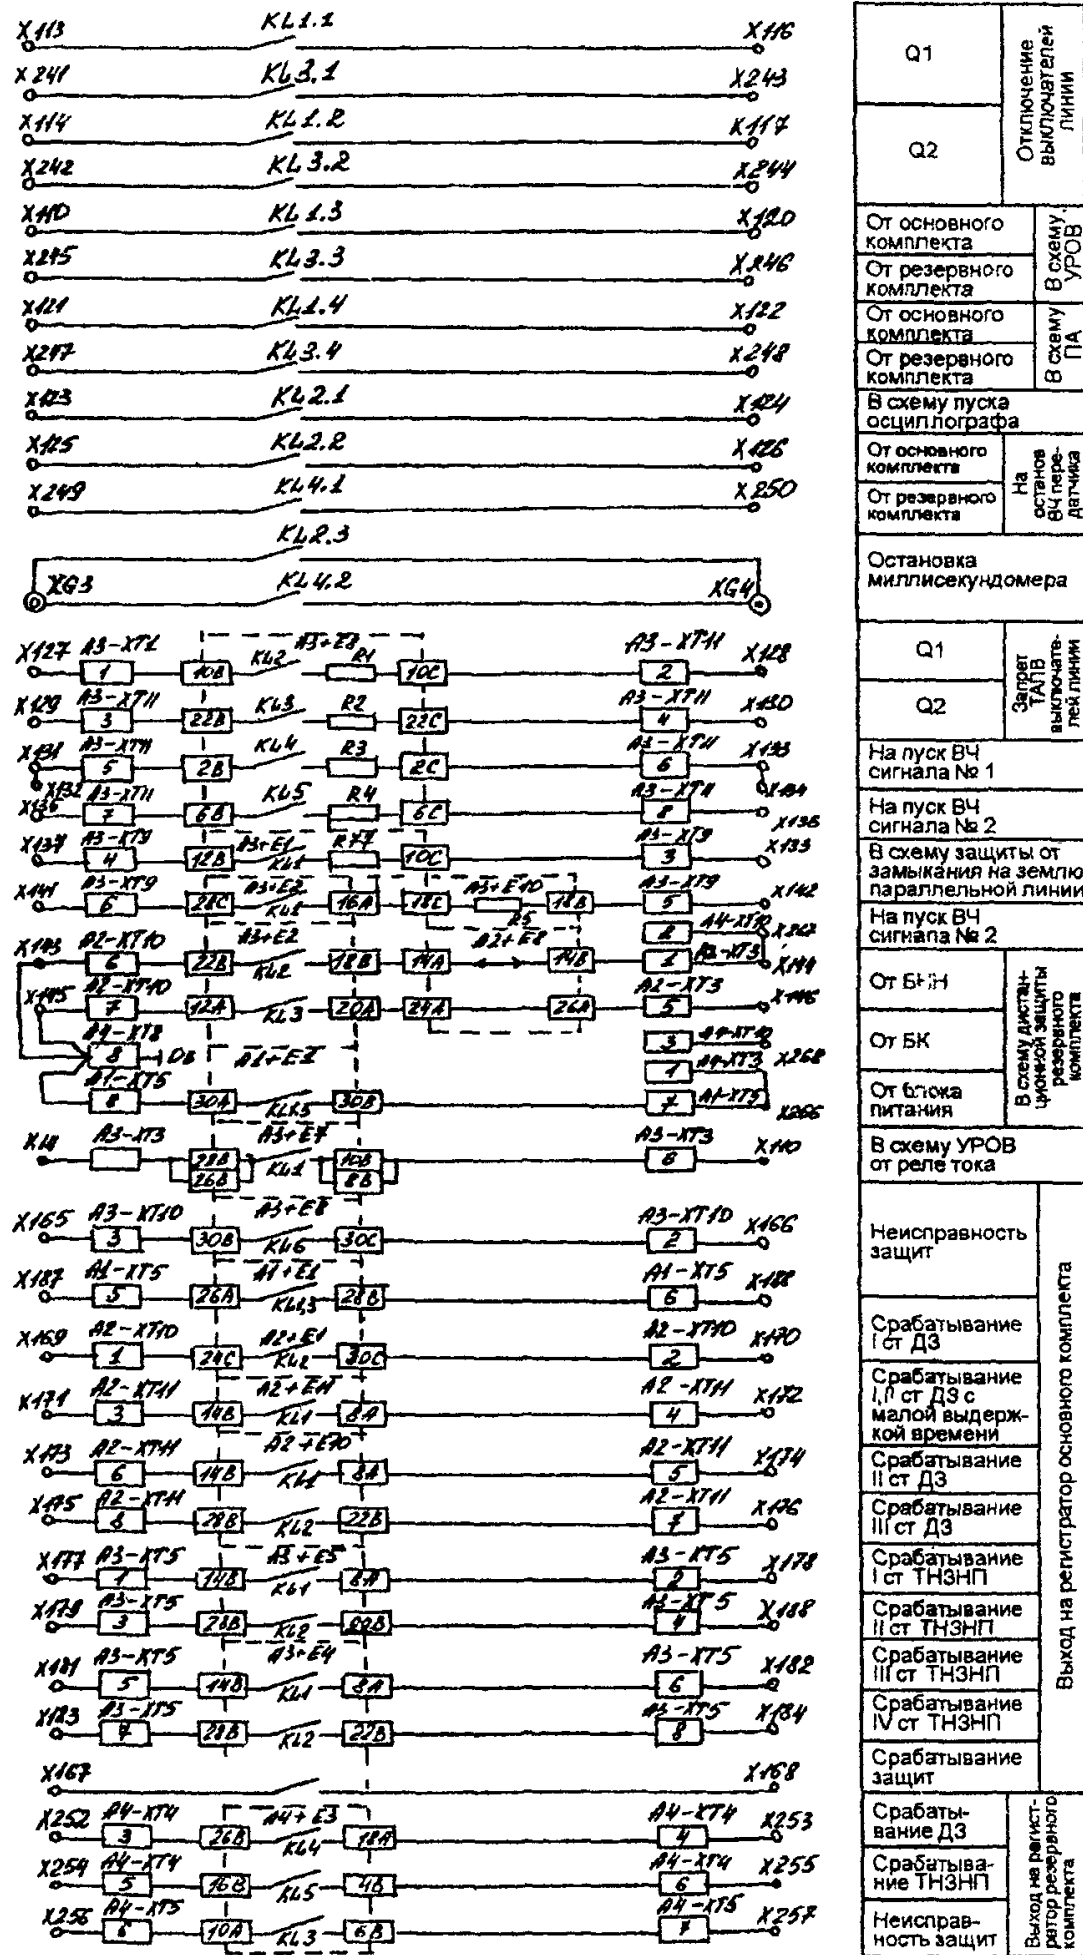 X113 KL1.1 X116
X241 KL3.1 X243
X114 KL1.2 X117
X242 KL3.2 X244
X110 KL1.3 X120
X245 KL3.3 X246
X121 KL1.4 X122
X247 KL3.4 X248
X123 KL2.1 X124
X125 KL2.2 X126
X249 KL4.1 X250
KL2.3
XG3 KL4.2 XG4
A3+E8
X127 A3-XT1 1 10B KL2 R1 10C A3-XT11 2 X128
X129 A3-XT11 3 22B KL3 R2 22C A3-XT11 4 X130
X131 A3-XT11 5 2B KL4 R3 2C A3-XT11 6 X133
X132 X134
X136 A3-XT11 7 6B KL5 R4 6C A3-XT11 8 X136
X137 A3-XT9 4 12B A3+E1 KL1 R17 10C A3-XT9 3
X141 A3-XT9 6 28C A3+E2 KL2 16A 18E A3+E10 R5 18B A3-XT9 5 X142
2 A4-XT10 X267
X143 A2-XT10 6 22B A3+E2 KL2 18B 14A A2+E8 14B 1 A2-XT3 X144
X145 A2-XT10 7 12A KL3 20A 24A 26A A2-XT3 5 X146
A4-XT8 8 3 A4-XT10 X268
1 A4-XT3
A1-XT5 8 30A 30B 7 A1-XT5 X266
A3-XT3 28B A3+E7 KL1 10B A3-XT3 8 X110
26B 8B
X165 A3-XT10 3 30B A3+E8 KL6 30C A3-XT10 2 X166
X187 A1-XT5 5 26A A1+E1 KL1,3 28B A1-XT5 6 X188
X169 A2-XT10 1 24C A2+E1 KL2 30C A2-XT10 2 X170
X171 A2-XT11 3 14B A2+E11 KL1 8A A2-XT11 4 X172
X173 A2-XT11 6 14B A2+E10 KL1 8A A2-XT11 5 X174
X175 A2-XT11 8 28B KL2 22B A2-XT11 7 X176
X177 A3-XT5 1 14B A3+E5 KL1 8A A3-XT5 2 X178
X179 A3-XT5 3 28B KL2 22B A3-XT5 4 X188
X181 A3-XT5 5 14B A3+E4 KL1 8A A3-XT5 6 X182
X183 A3-XT5 7 28B KL2 22B A3-XT5 8 X184
X167 X168
X252 A4-XT4 3 26B A4+E3 KL4 18A A4-XT4 4 X253
X254 A4-XT4 5 16B KL5 4B A4-XT4 6 X255
X256 A4-XT5 6 10A KL3 6B A4-XT5 7 X257
Q1
Q2
Отключение
выключателей
линии
От основного
комплекта
От резервного
комплекта
В схему
УРОВ
От основного
комплекта
От резервного
комплекта
В схему
ПА
В схему пуска
осциллографа
От основного
комплекта
От резервного
комплекта
На
останов
ВЧ пере-
датчика
Остановка
миллисекундомера
Q1
Q2
Запрет
ТАПВ
выключате-
лей линии
На пуск ВЧ
сигнала № 1
На пуск ВЧ
сигнала № 2
В схему защиты от
замыкания на землю
параллельной линии
На пуск ВЧ
сигнала № 2
От БНН
От БК
От блока
питания
В схему дистан-
ционной защиты
резервного
комплекта
В схему УРОВ
от реле тока
Неисправность
защит
Срабатывание
I ст ДЗ
Срабатывание
I,II ст ДЗ с
малой выдерж-
кой времени
Срабатывание
II ст ДЗ
Срабатывание
III ст ДЗ
Срабатывание
I ст ТНЗНП
Срабатывание
II ст ТНЗНП
Срабатывание
III ст ТНЗНП
Срабатывание
IV ст ТНЗНП
Срабатывание
защит
Выход на регистратор основного комплекта
Срабаты-
вание ДЗ
Срабатыва-
ние ТНЗНП
Неисправ-
ность защит
Выход на регист-
ратор резервного
комплекта